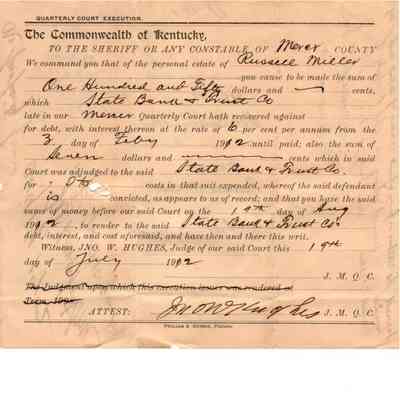 QUARTERLY COURT EXECUTION.
The Commonwealth of Kentucky,
TO THE SHERIFF OR ANY CONSTABLE OF Mercer COUNTY
We command you that of the personal estate of Russell Miller
you cause to be made the sum of
One Hundred and Fifty dollars and — cents,
which State Bank & Trust Co
late in our Mercer Quarterly Court hath recovered against
for debt, with interest thereon at the rate of 6 per cent per annum from the
3 day of Feby 1912 until paid; also the sum of
Seven dollars and — cents which in said
Court was adjudged to the said State Bank & Trust Co.
for its costs in that suit expended, whereof the said defendant
is convicted, as appears to us of record; and that you have the said
sums of money before our said Court on the 19th day of Aug
1912, to render to the said State Bank & Trust Co.
debt, interest, and cost aforesaid, and have then and there this writ.
Witness, JNO. W. HUGHES, Judge of our said Court this 19th
day of July 1912
J. M. Q. C.
The Judgment upon which this execution issues was rendered at
Term 190
ATTEST: Jno W Hughes J. M. Q. C.